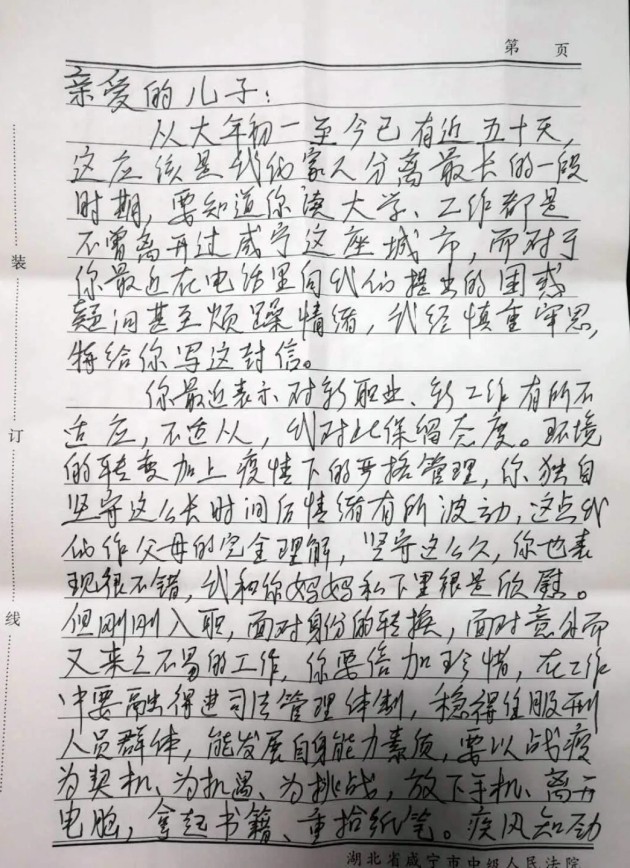 第 页
亲爱的儿子：
从大年初一至今已有近五十天，
这应该是我们家人分离最长的一段
时期，要知道你读大学、工作都是
不曾离开过咸宁这座城市，而对于
你最近在电话里向我们提出的困惑
疑问甚至烦躁情绪，我经慎重审思，
特给你写这封信。
你最近表示对新职业、新工作有所不
适应，不适从，我对此保留态度。环境
的转变加上疫情下的严格管理，你独自
坚守这么长时间后情绪有所波动，这点我
们作父母的完全理解，坚守这么久，你也表
现很不错，我和你妈妈私下里很是欣慰。
但刚刚入职，面对身份的转换，面对意外而
又来之不易的工作，你要倍加珍惜，在工作
中要融得进司法管理体制，稳得住服刑
人员群体，能发展自身能力素质，要以战疫
为契机、为机遇、为挑战，放下手机、离开
电脑，拿起书籍、重拾纸笔。疾风知劲
装
订
线
湖北省咸宁市中级人民法院